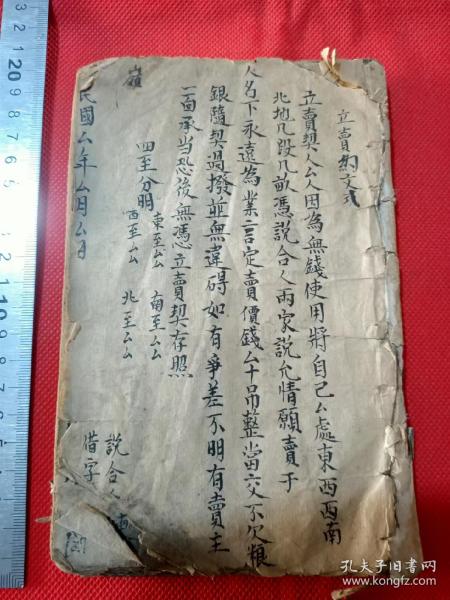 立賣約文式
立賣契人厶人因為無錢使用將自己厶處東西西南
北地几段几畝憑說合人兩家說允情願賣于
人名下永遠為業言定賣價錢厶十吊整當交不欠糧
銀隨契過撥並無違碍如有爭差不明有賣主
一面承当恐後無憑立賣契存照
四至分明 東至厶厶 南至厶厶
西至厶厶 北至厶厶
說合人
借字
民國厶年厶月厶日
孔夫子旧书网
www.kongfz.com